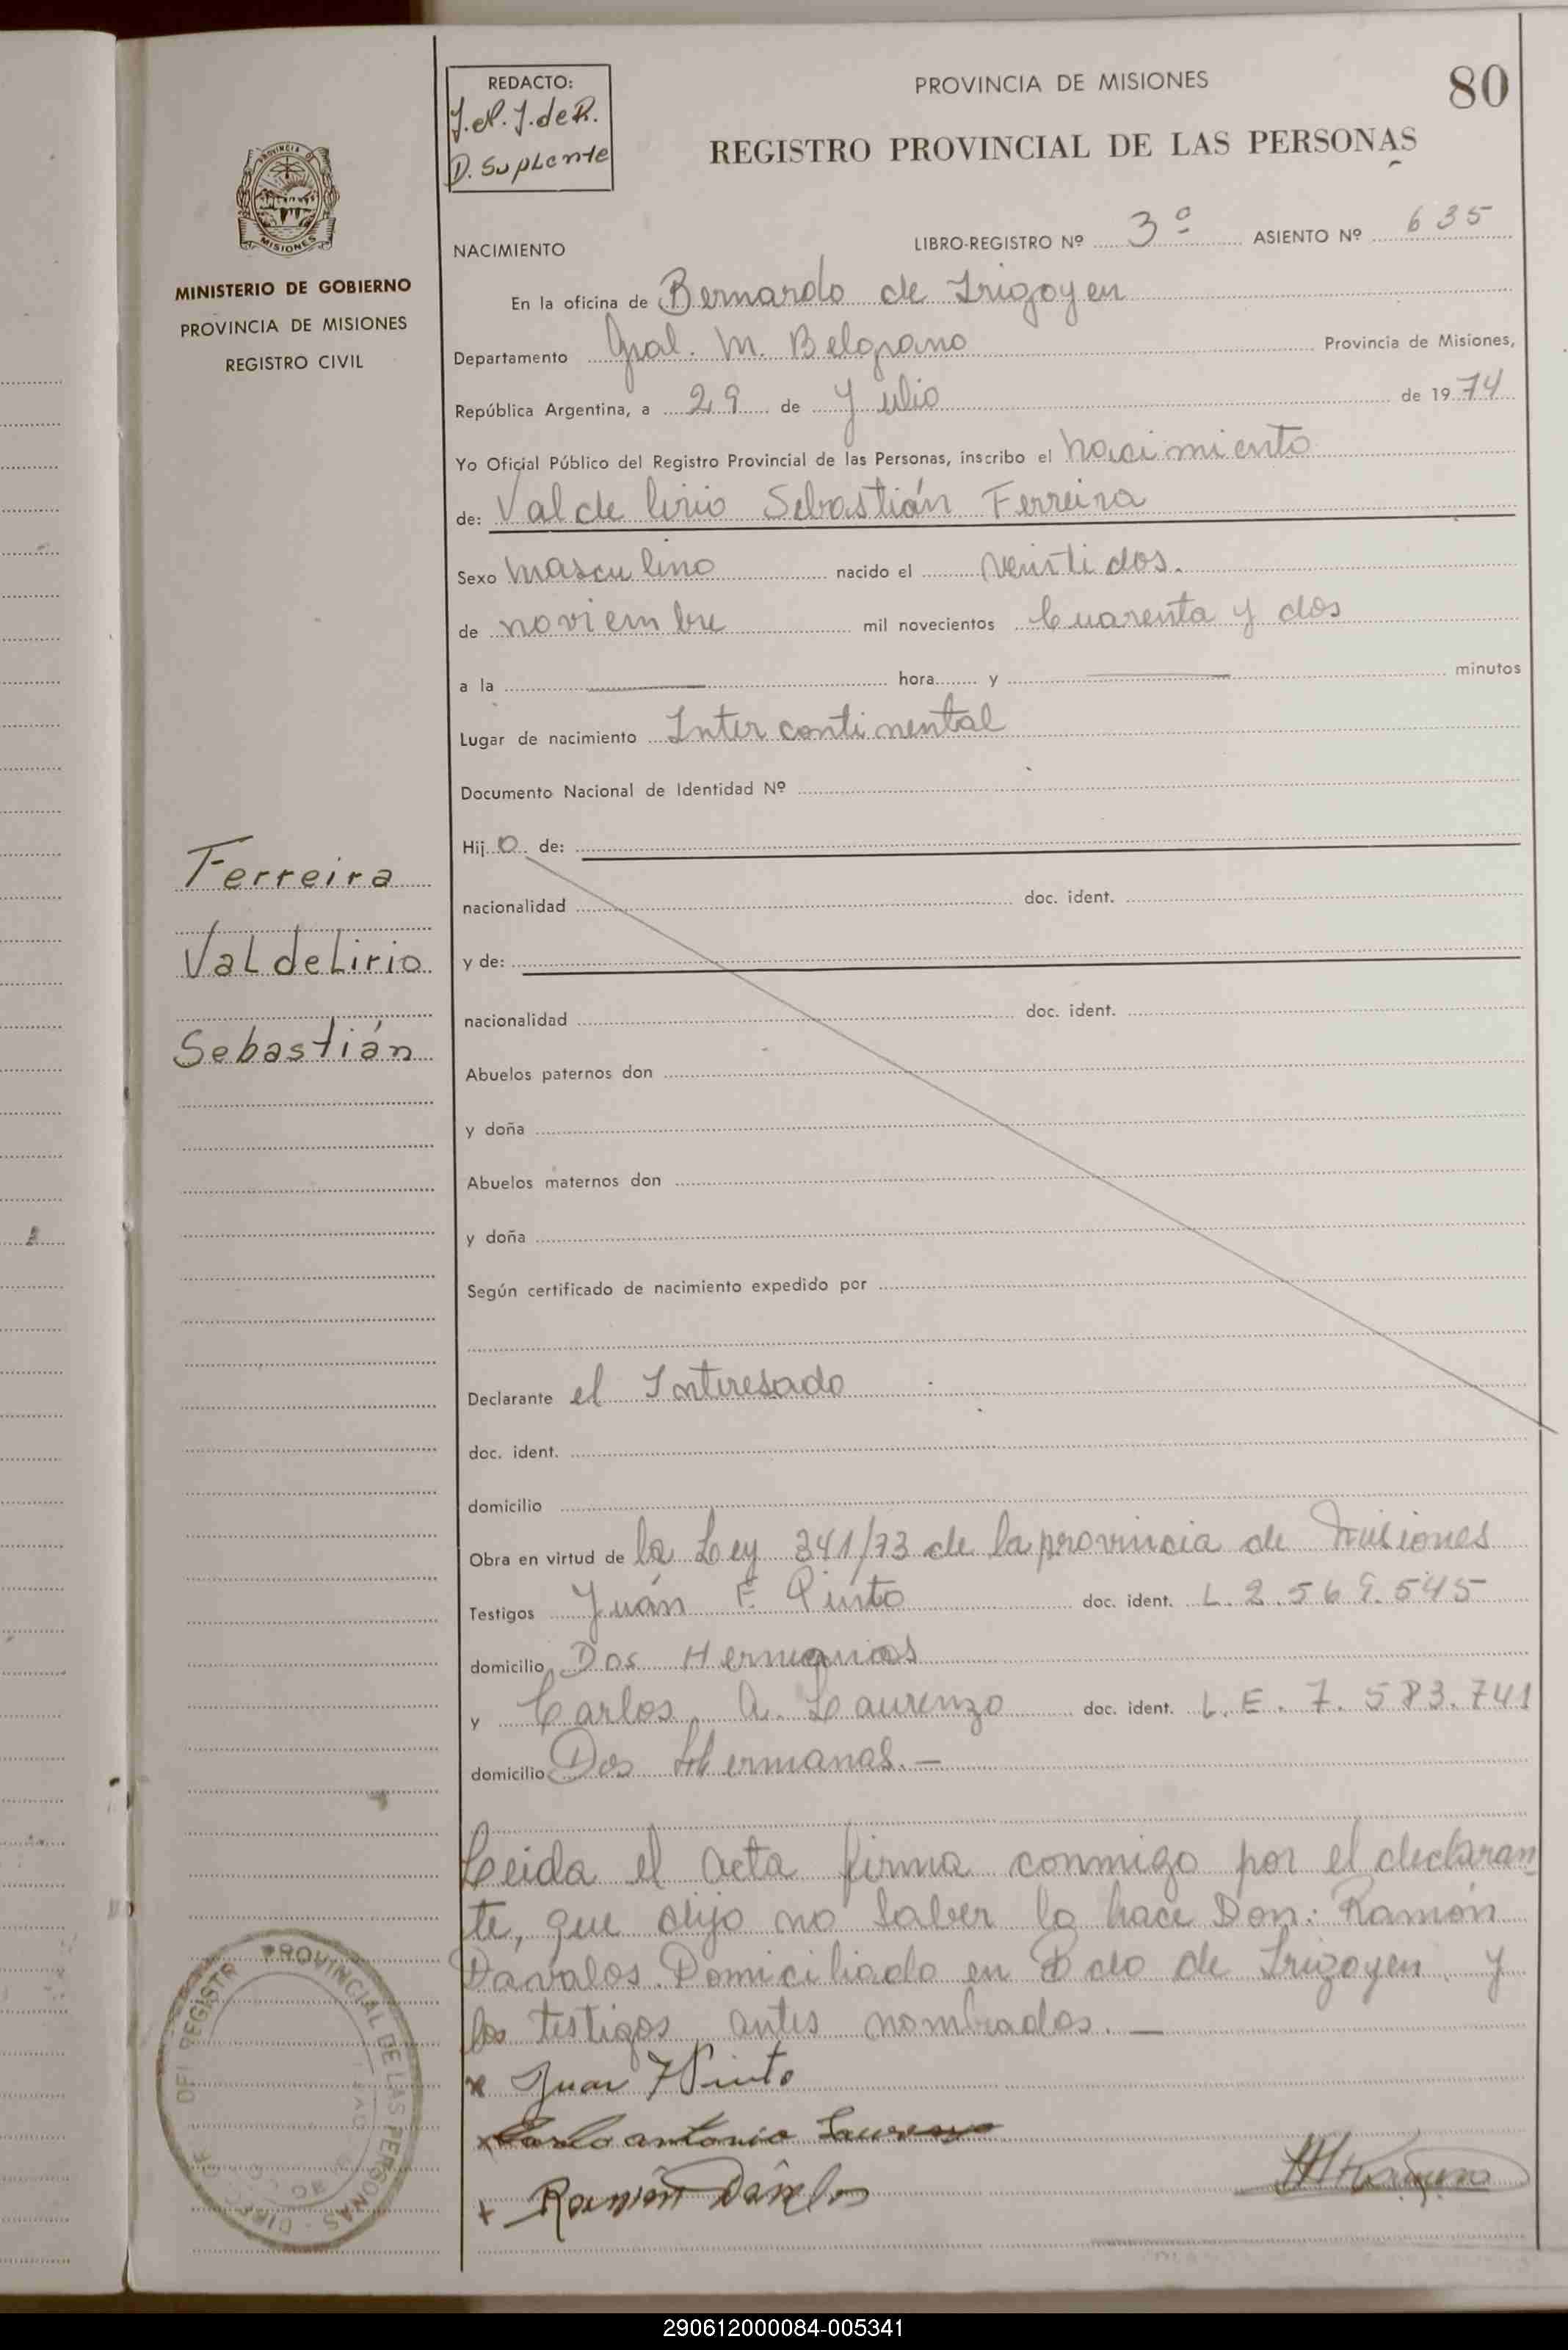 REDACTO:
D. Suplente
PROVINCIA DE MISIONES
80
REGISTRO PROVINCIAL DE LAS PERSONAS
MISIONES
MINISTERIO DE GOBIERNO
PROVINCIA DE MISIONES
REGISTRO CIVIL
NACIMIENTO
LIBRO-REGISTRO Nº 3º ASIENTO Nº 635
En la oficina de Bernardo de Irigoyen
Departamento Gral. M. Belgrano Provincia de Misiones,
República Argentina, a 29 de Julio de 1974
Yo Oficial Público del Registro Provincial de las Personas, inscribo el nacimiento
de: Valdelirio Sebastián Ferreira
Sexo masculino nacido el veintidos.
de noviembre mil novecientos Cuarenta y dos
a la hora y minutos
Lugar de nacimiento Intercontinental
Documento Nacional de Identidad Nº
Hijo de:
nacionalidad doc. ident.
y de:
nacionalidad doc. ident.
Abuelos paternos don
y doña
Abuelos maternos don
y doña
Según certificado de nacimiento expedido por
Ferreira
Valdelirio
Sebastián
Declarante el Interesado
doc. ident.
domicilio
Obra en virtud de la Ley 341/73 de la provincia de Misiones
Testigos Juán F. Pinto doc. ident. L. 2.569.545
domicilio Dos Hermanas
y Carlos A. Laurenzo doc. ident. L.E. 7.583.741
domicilio Dos Hermanas.—
Leida el acta firma conmigo por el declaran
te, que dijo no saber lo hace Don: Ramón
Davalos. Domiciliado en Bdo de Irigoyen y
los testigos antes nombrados.—
x Juan F Pinto
x Carlo antonio Laurenzo
x Ramón Dávalos
REGISTR PROVINCIAL DE LAS PERSONAS
290612000084-005341